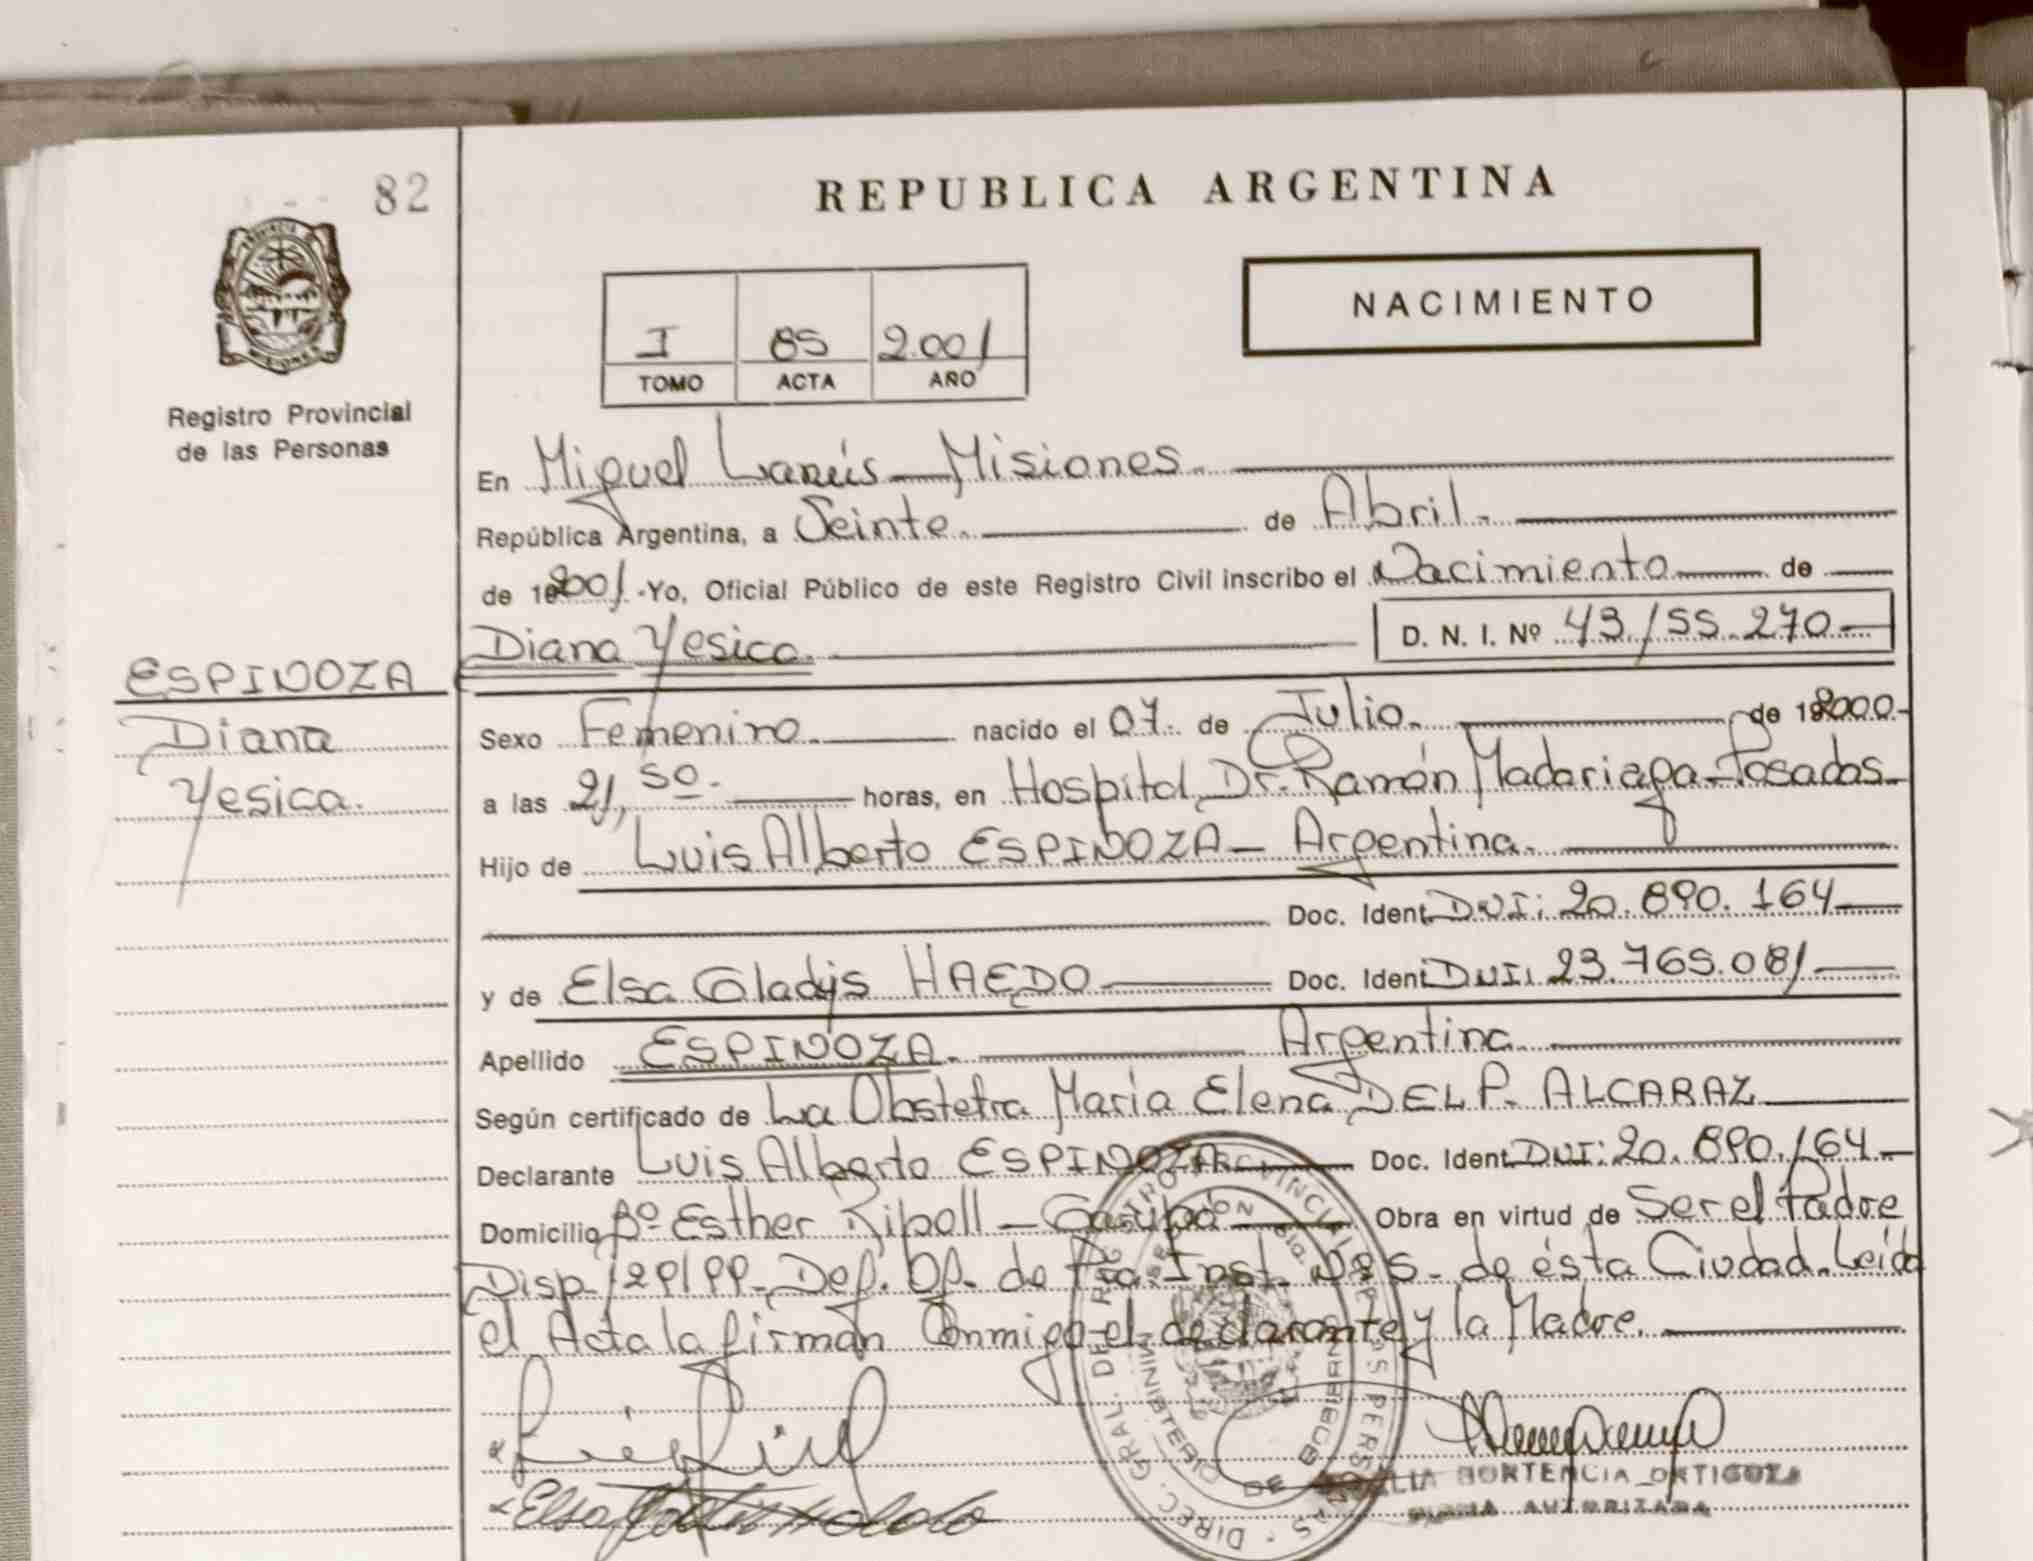 82
REPUBLICA ARGENTINA
PROVINCIA DE MISIONES
Registro Provincial
de las Personas
I 85 2.001
TOMO ACTA AÑO
NACIMIENTO
En Miguel Lanús - Misiones.
República Argentina, a Veinte. de Abril.
de 2001. Yo, Oficial Público de este Registro Civil inscribo el Nacimiento de
Diana Yesica. D. N. I. Nº 43.155.270
ESPINOZA
Diana
Yesica.
Sexo Femenino. nacido el 07. de Julio. de 2000.
a las 21,50. horas, en Hospital Dr. Ramón Madariaga - Posadas.
Hijo de Luis Alberto ESPINOZA - Argentina.
Doc. Ident. DNI: 20.890.164
y de Elsa Gladys HAEDO Doc. Ident. DNI: 23.765.081
Apellido ESPINOZA. Argentina.
Según certificado de La Obstetra María Elena DEL P. ALCARAZ
Declarante Luis Alberto ESPINOZA Doc. Ident. DNI: 20.890.164
Domicilio Bº Esther Riboll - Garupá Obra en virtud de Ser el Padre
Disp. 129/99 - Def. Of. de Pra. Inst. Nº 5 - de ésta Ciudad. Leída
el Acta la firman Conmigo el declarante y la Madre.
DIREC. GRAL. DEL REGISTRO PROVINCIAL DE LAS PERSONAS
MINISTERIO DE GOBIERNO
HORTENCIA ORTIGOZA
FIRMA AUTORIZADA